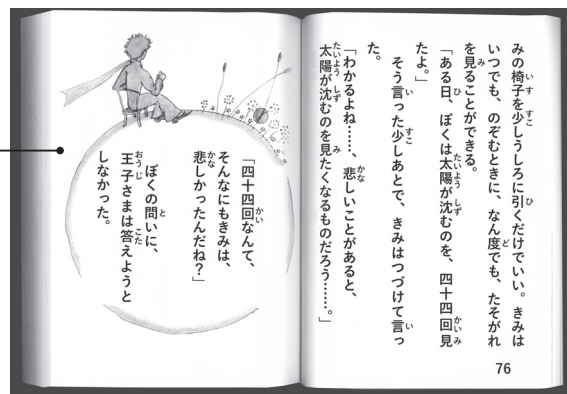 みの椅子を少しうしろに引くだけでいい。きみは
いつでも、のぞむときに、なん度でも、たそがれ
を見ることができる。
「ある日、ぼくは太陽が沈むのを、四十四回見
たよ。」
そう言った少しあとで、きみはつづけて言っ
た。
「わかるよね……、悲しいことがあると、
太陽が沈むのを見たくなるものだろう……。」
76
「四十四回なんて、
そんなにもきみは、
悲しかったんだね?」
ぼくの問いに、
王子さまは答えようと
しなかった。